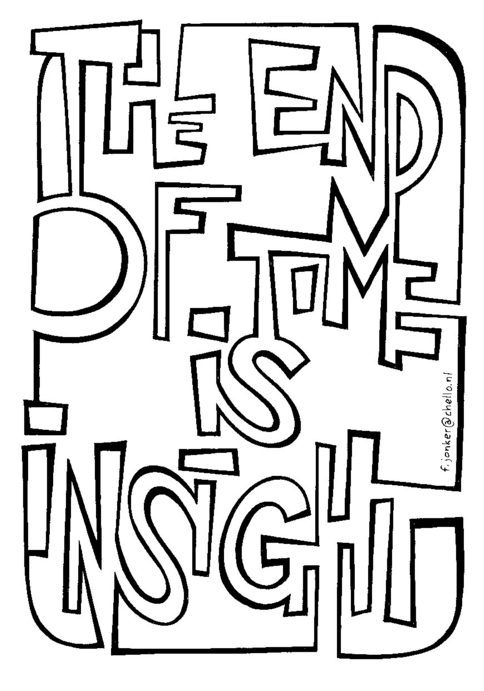 THE END
OF TIME
iS
iNSiGHT
f.jonker@chello.nl